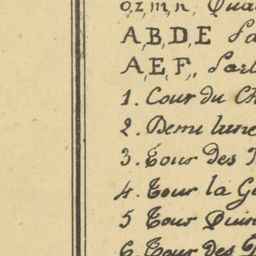 o, z, m, n, Qua
A, B, D, E
A, E, F,,
1. Cour du Ch
2. Demi lune
3. Tour des
4. Tour la G
5 Tour
6 Tour des